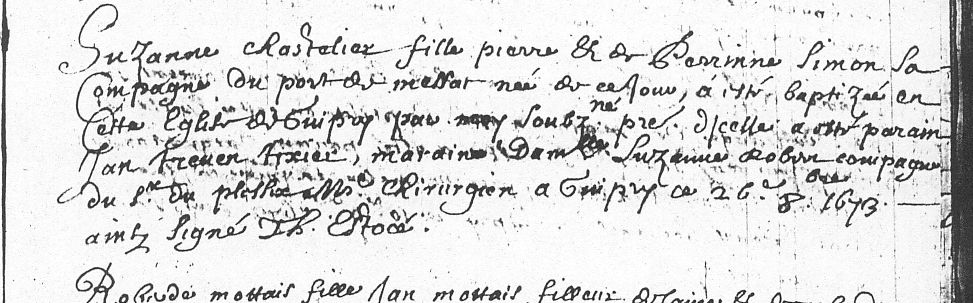 Suzanne chastelier fille pierre & de Perrinne Simon sa
Compagne du port de messat née de ce Jour, a esté baptizée en
Cette Eglise de Guipry par moy soubz né pré. d'icelle a esté parain
Jan treven texier, maraine Dam.lle Suzanne compagne
du Sr. du plessix Me. Chirurgien a Guipry ce 26.e 8.bre 1673.
ainsy Signé Th. Estoré.
mottais fille Jan mottais filleur